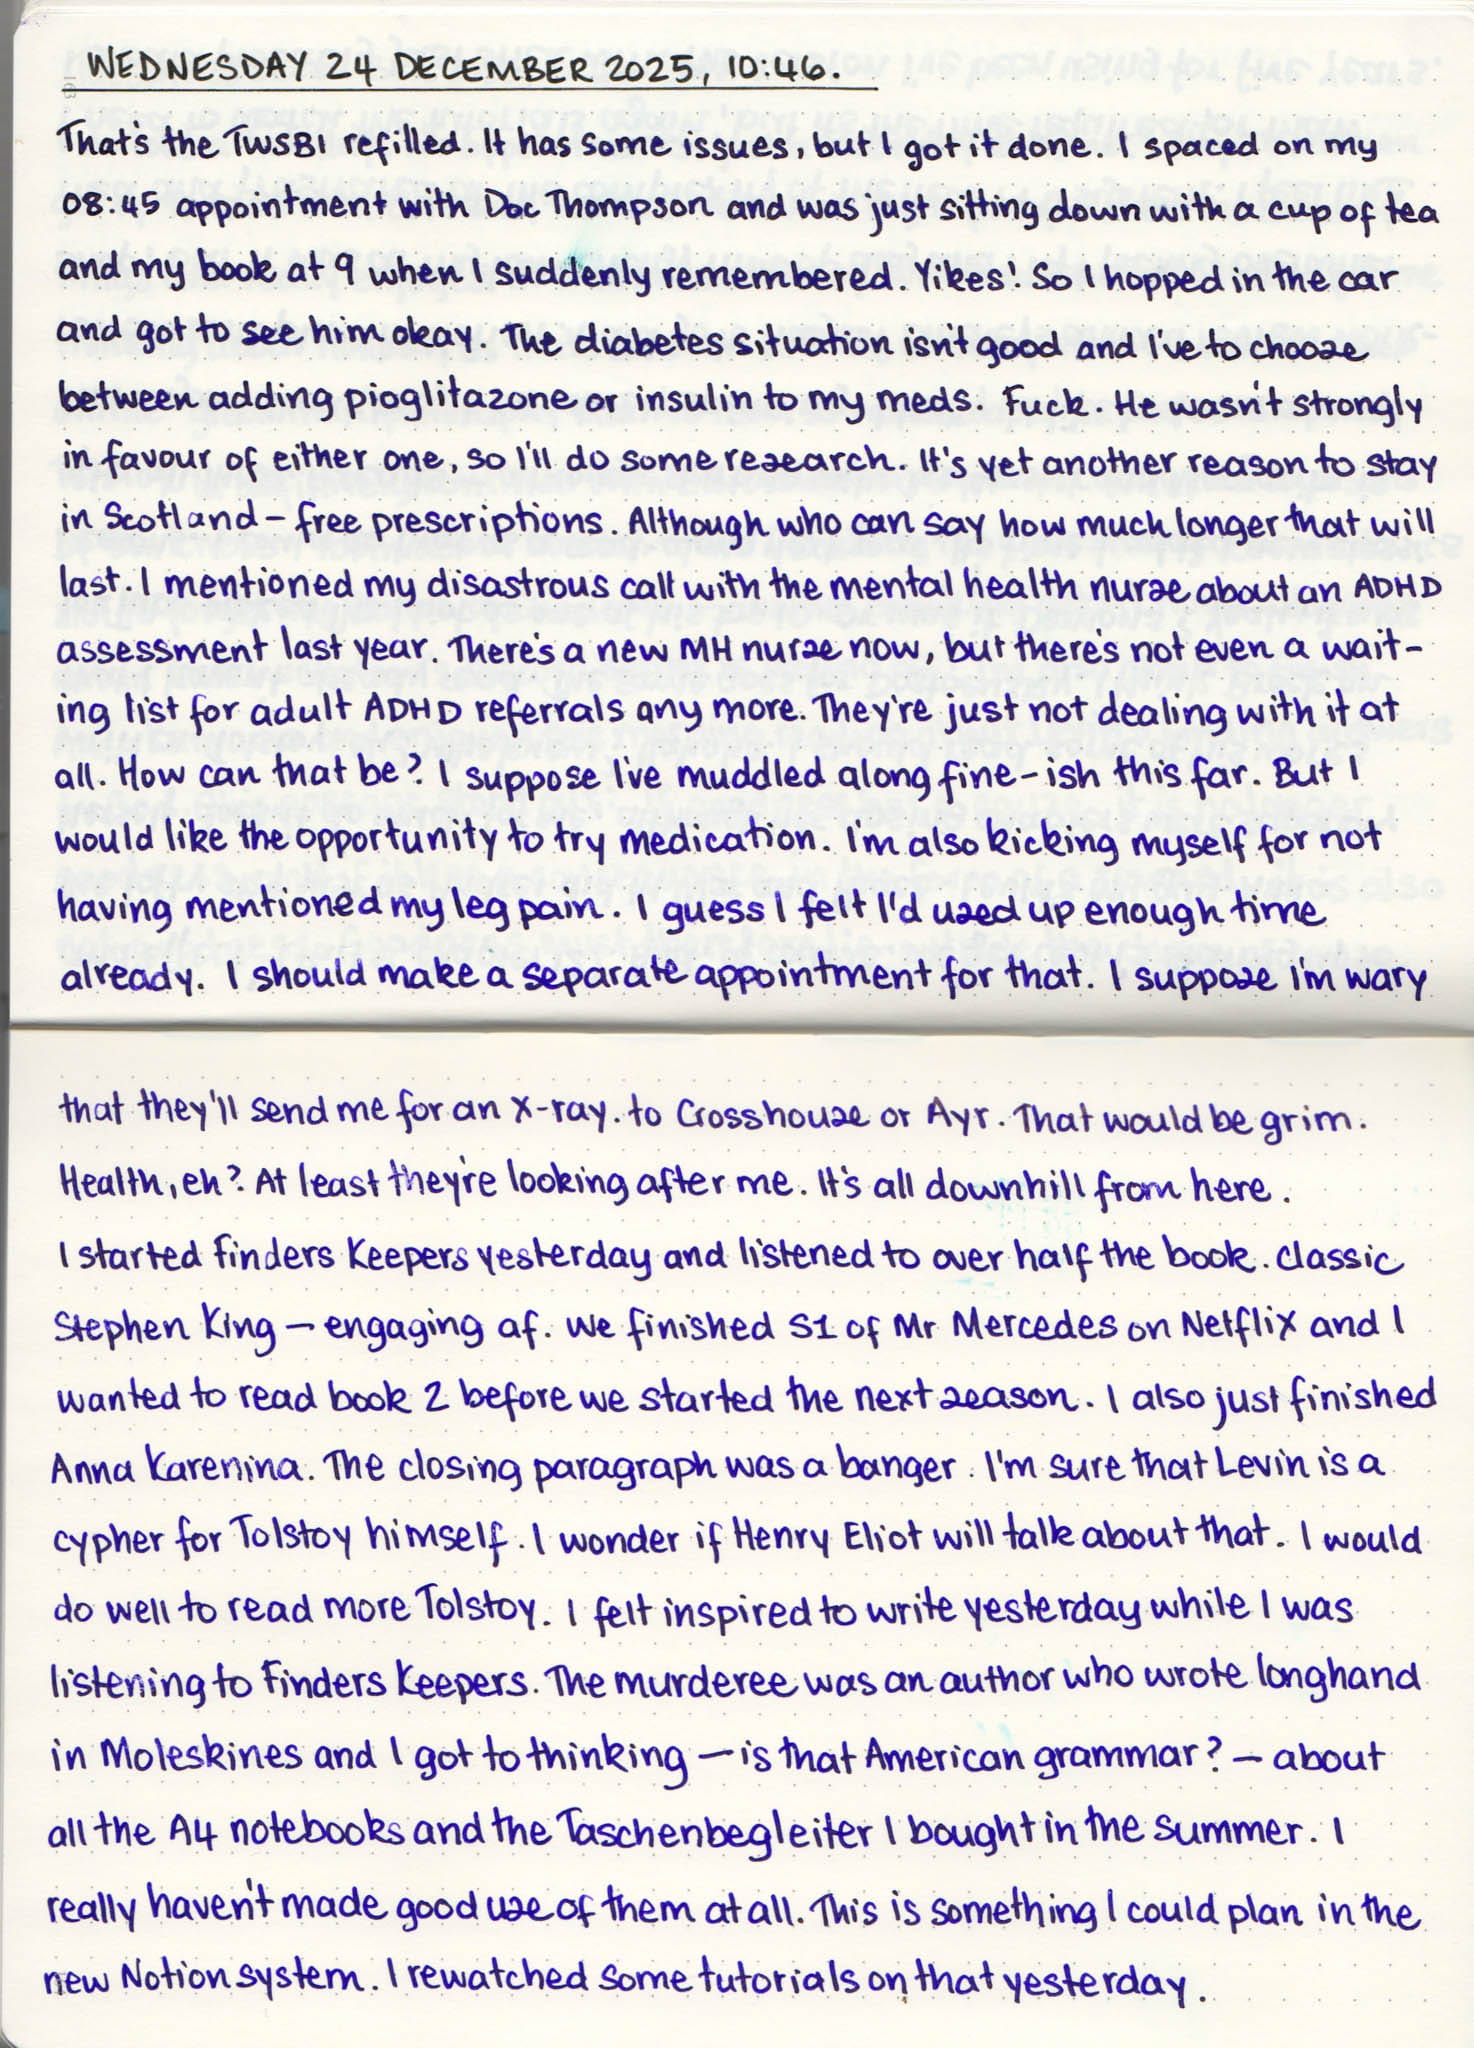 WEDNESDAY 24 DECEMBER 2025, 10:46.
That's the TWSBI refilled. It has some issues, but I got it done. I spaced on my
08:45 appointment with Doc Thompson and was just sitting down with a cup of tea
and my book at 9 when I suddenly remembered. Yikes! So I hopped in the car
and got to see him okay. The diabetes situation isn't good and I've to choose
between adding pioglitazone or insulin to my meds. Fuck. He wasn't strongly
in favour of either one, so I'll do some research. It's yet another reason to stay
in Scotland – free prescriptions. Although who can say how much longer that will
last. I mentioned my disastrous call with the mental health nurse about an ADHD
assessment last year. There's a new MH nurse now, but there's not even a wait-
ing list for adult ADHD referrals any more. They're just not dealing with it at
all. How can that be? I suppose I've muddled along fine-ish this far. But I
would like the opportunity to try medication. I'm also kicking myself for not
having mentioned my leg pain. I guess I felt I'd used up enough time
already. I should make a separate appointment for that. I suppose I'm wary
that they'll send me for an X-ray. to Crosshouse or Ayr. That would be grim.
Health, eh? At least they're looking after me. It's all downhill from here.
I started Finders Keepers yesterday and listened to over half the book. Classic
Stephen King – engaging af. We finished S1 of Mr Mercedes on Netflix and I
wanted to read book 2 before we started the next season. I also just finished
Anna Karenina. The closing paragraph was a banger. I'm sure that Levin is a
cypher for Tolstoy himself. I wonder if Henry Eliot will talk about that. I would
do well to read more Tolstoy. I felt inspired to write yesterday while I was
listening to Finders Keepers. The murderee was an author who wrote longhand
in Moleskines and I got to thinking – is that American grammar? – about
all the A4 notebooks and the Taschenbegleiter I bought in the summer. I
really haven't made good use of them at all. This is something I could plan in the
new Notion system. I rewatched some tutorials on that yesterday.